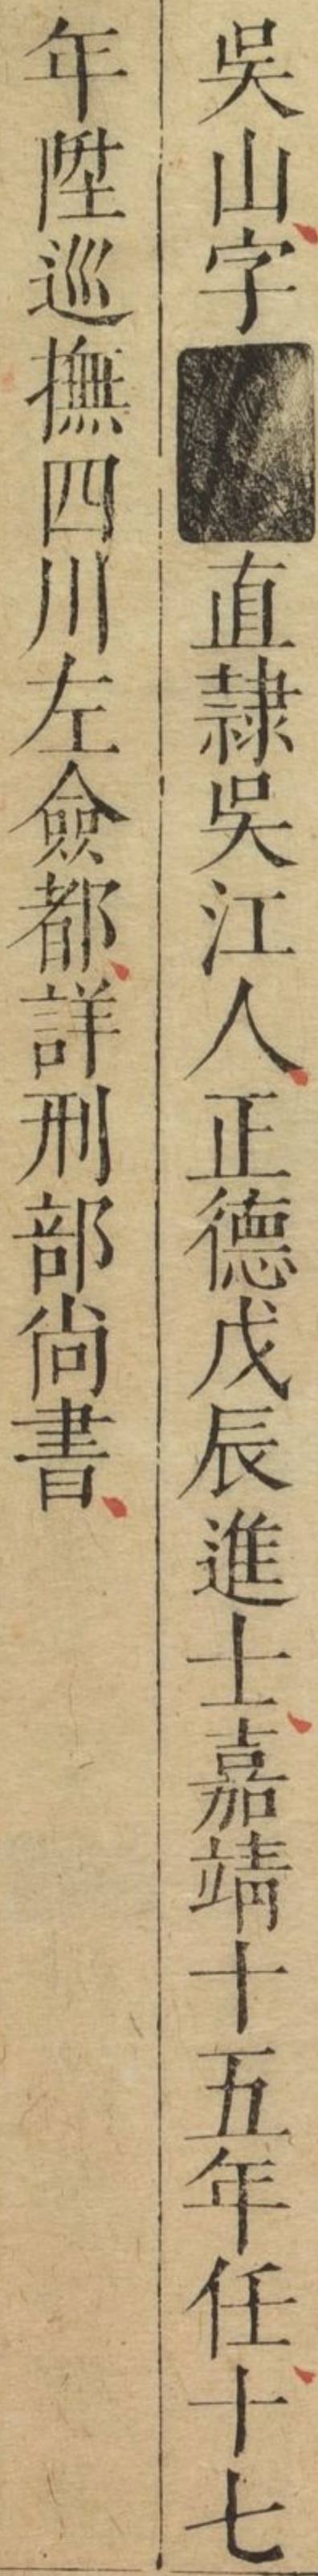 吳山字直隷吳江人正德戊辰進士嘉靖十五年任十七
年陞巡撫四川左僉都詳刑部尙書